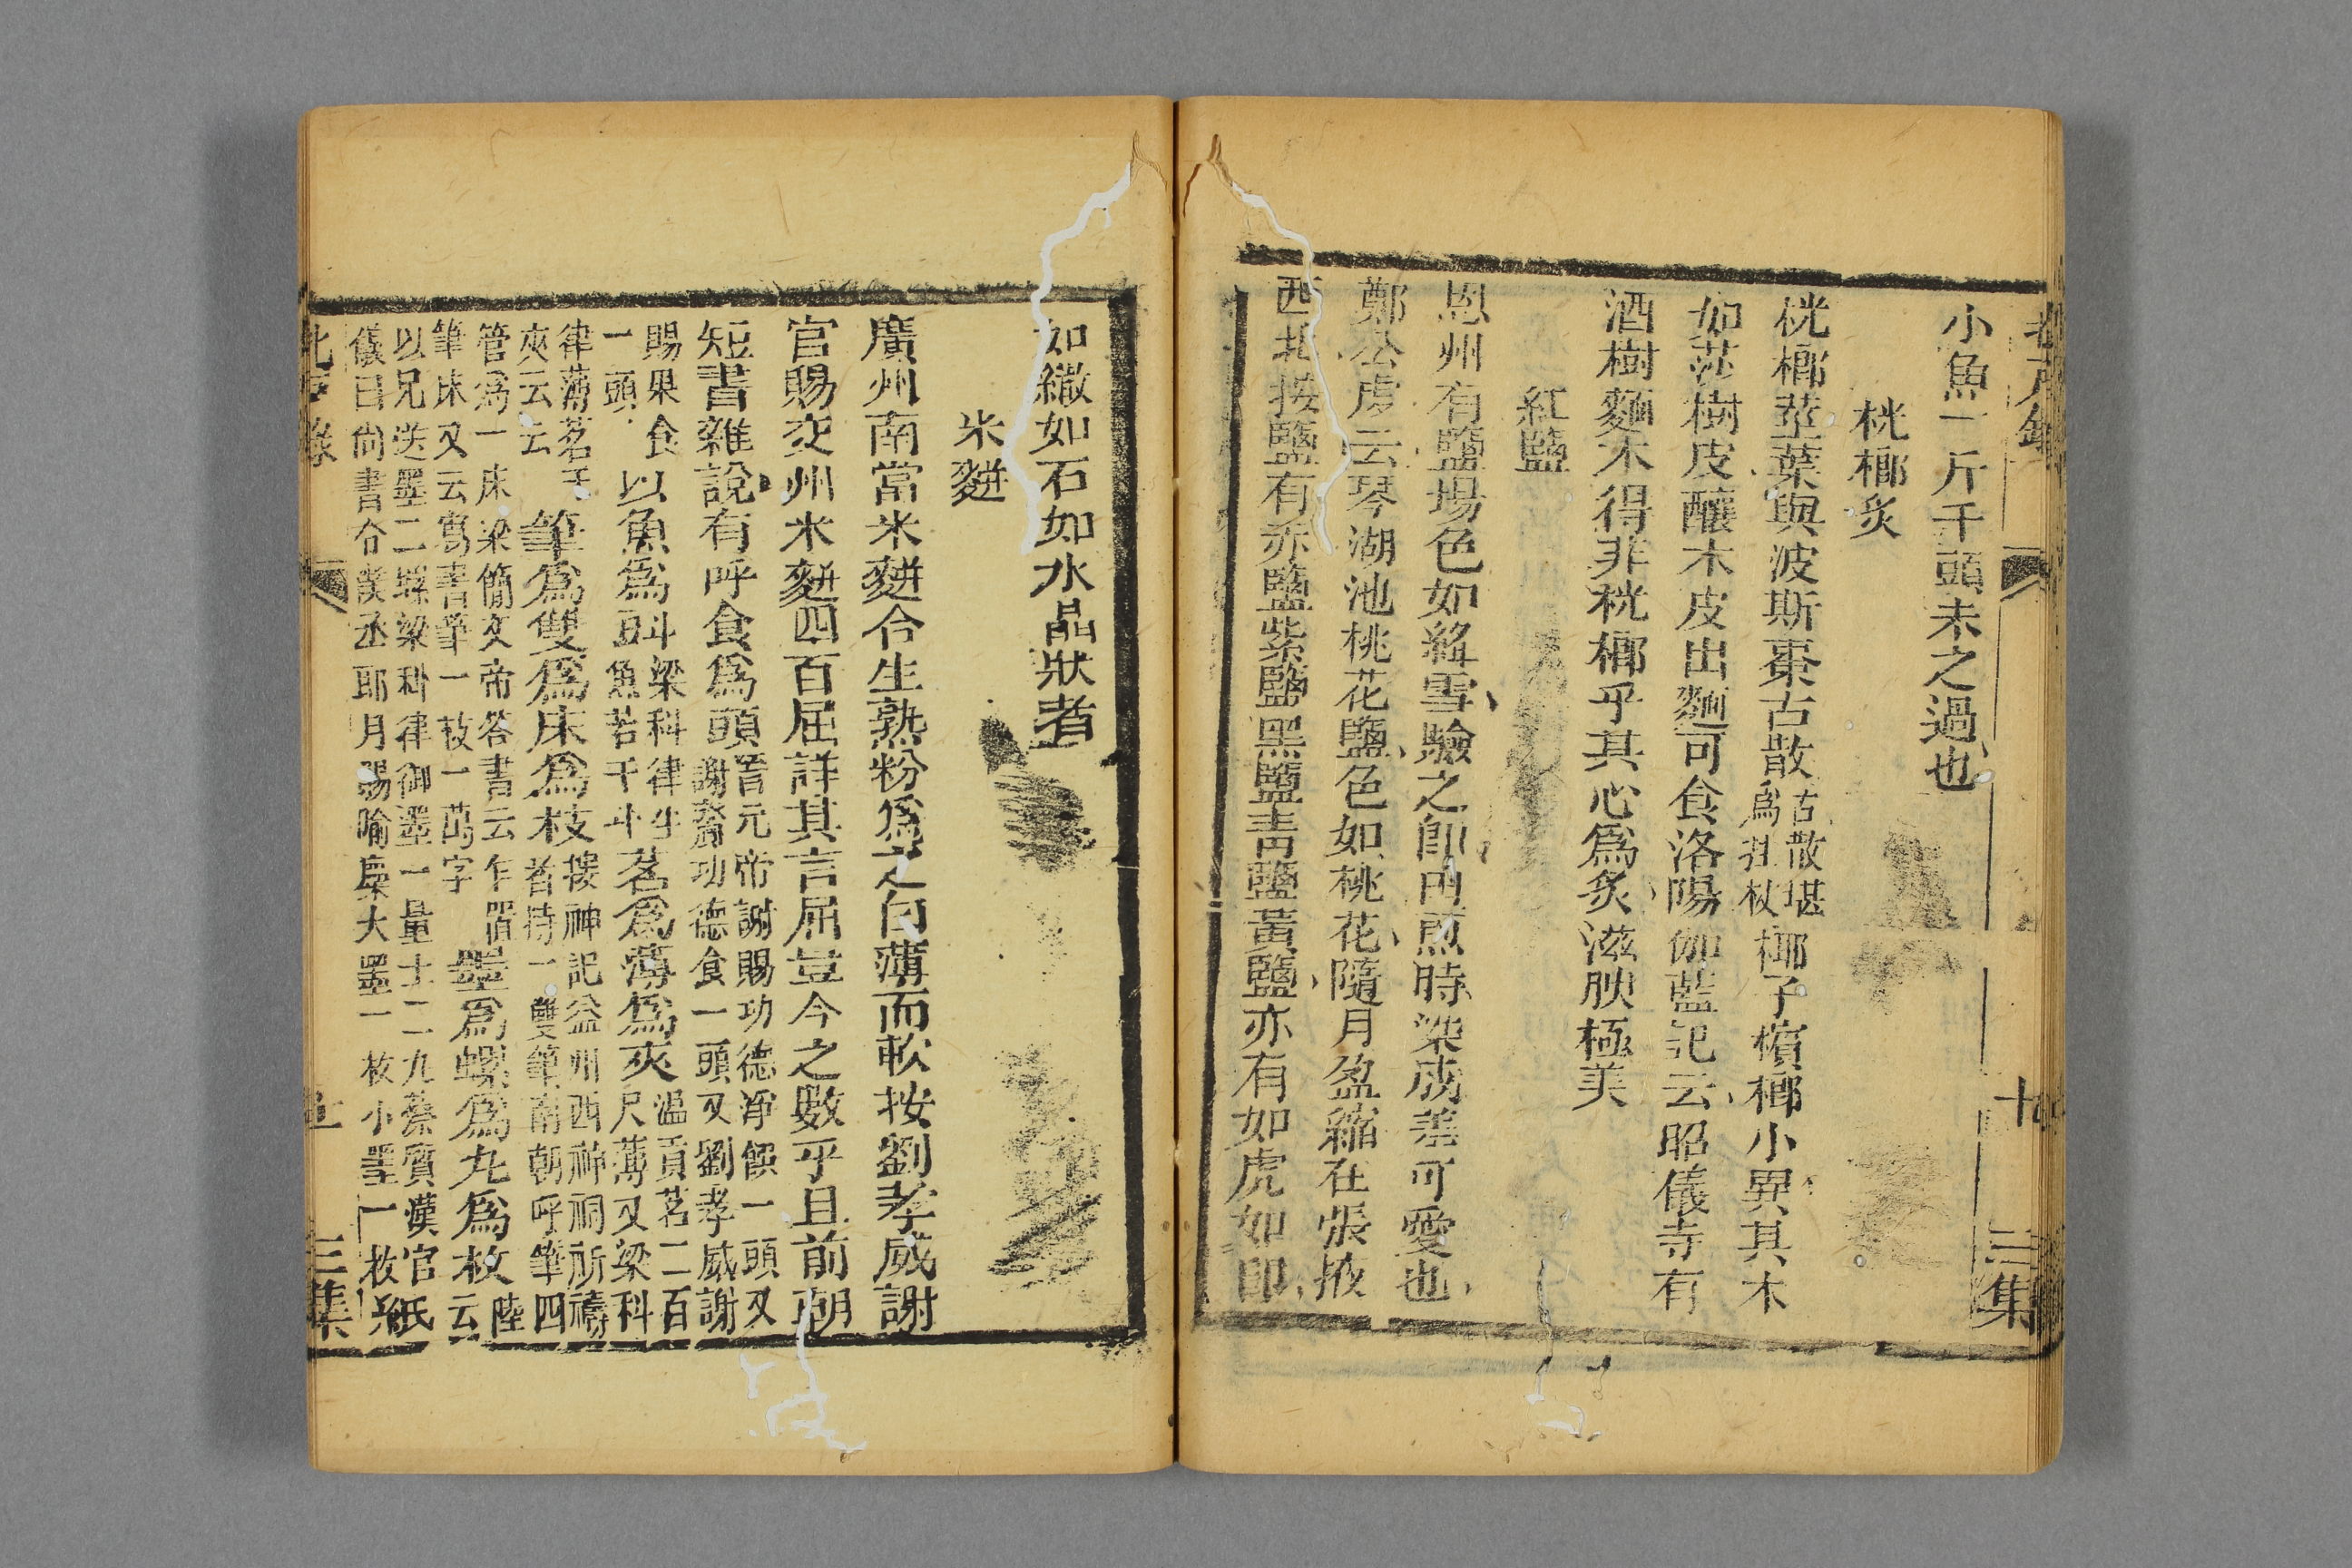 小魚一斤千頭未之過也
桄榔炙
桄榔莖葉與波斯棗古散古散堪爲拄杖椰子檳榔小異其木
如莎樹皮釀木皮出麵可食洛陽伽藍記云昭儀寺有
酒樹麵木得非桄榔乎其心爲炙滋腴極美
紅鹽
恩州有鹽場色如絳雪驗之即由煎時染成差可愛也
鄭公虔云琴湖池桃花鹽色如桃花隨月盈縮在張掖
西北按鹽有赤鹽紫鹽黑鹽青鹽黃鹽亦有如虎如印
十
三集
如繖如石如水晶狀者
米䴵
廣州南當米䴵合生熟粉爲之白薄而軟按劉孝威謝
官賜交州米䴵四百屈詳其言屈豈今之數乎且前朝
短書雜說有呼食爲頭晉元帝謝賜功德淨饌一頭又
謝齎功德食一頭又劉孝威謝
賜果食
一頭
以魚爲斗梁科律生
魚若干斗
茗爲薄爲夾溫貢茗二百
尺薄又梁科
律薄茗千
夾云云
筆爲雙爲床爲枝搜神記益州西神祠祈禱
者持一雙筆南朝呼筆四
管爲一床梁簡文帝答書云乍置
筆床又云寫書筆一枝一萬字
墨爲螺爲丸爲枚陸
云
以兄送墨二螺梁科律御墨一量十二丸蔡質漢官
儀曰尚書令僕丞郎月賜隃麋大墨一枚小墨一枚
紙
三集